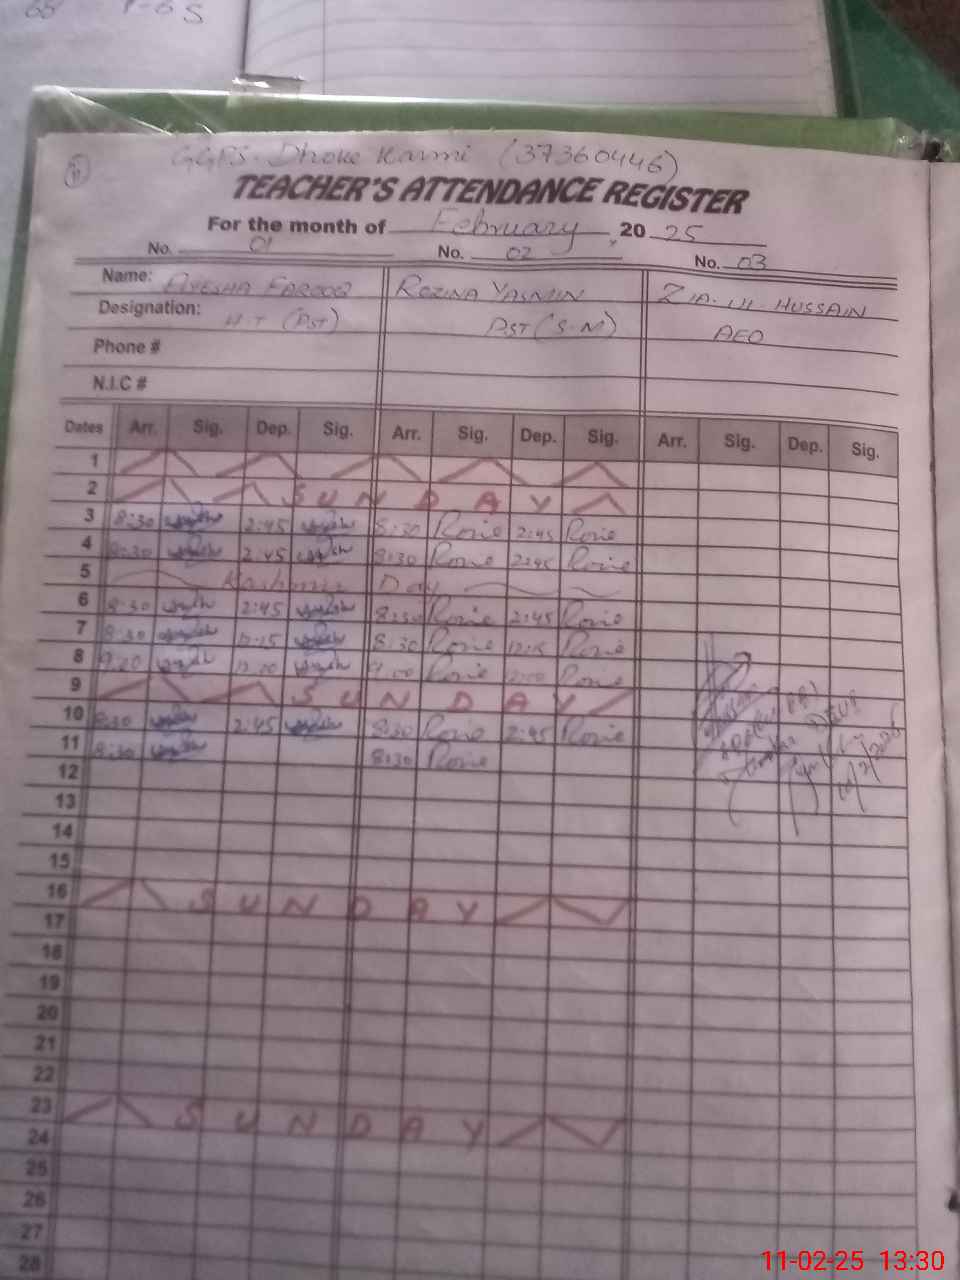 GGPS. Dhoke Karmi (37360446)
TEACHER'S ATTENDANCE REGISTER
For the month of February, 20 25
No. 01 No. 02 No. 03
Name: AYESHA FAROOQ ROZINA YASMIN ZIA-UL-HUSSAIN
Designation: H.T (PST) PST (S.M) AEO
Phone #
N.I.C #
Dates Arr. Sig. Dep. Sig. Arr. Sig. Dep. Sig. Arr. Sig. Dep. Sig.
1
2 SUNDAY
3 8:30 2:45 8:30 Rozie 2:45 Rozie
4 8:30 2:45 8:30 Rozie 2:45 Rozie
5 Kashmir Day
6 8:30 2:45 8:30 Rozie 2:45 Rozie
7 8:30 12:15 8:30 Rozie 12:15 Rozie
8 9:00 12:00 9:00 Rozie 12:00 Rozie
9 SUNDAY
10 8:30 2:45 8:30 Rozie 2:45 Rozie
11 8:30 8:30 Rozie
12
13
14
15
16 SUNDAY
17
18
19
20
21
22
23 SUNDAY
24
25
26
27
28
11-02-25 13:30